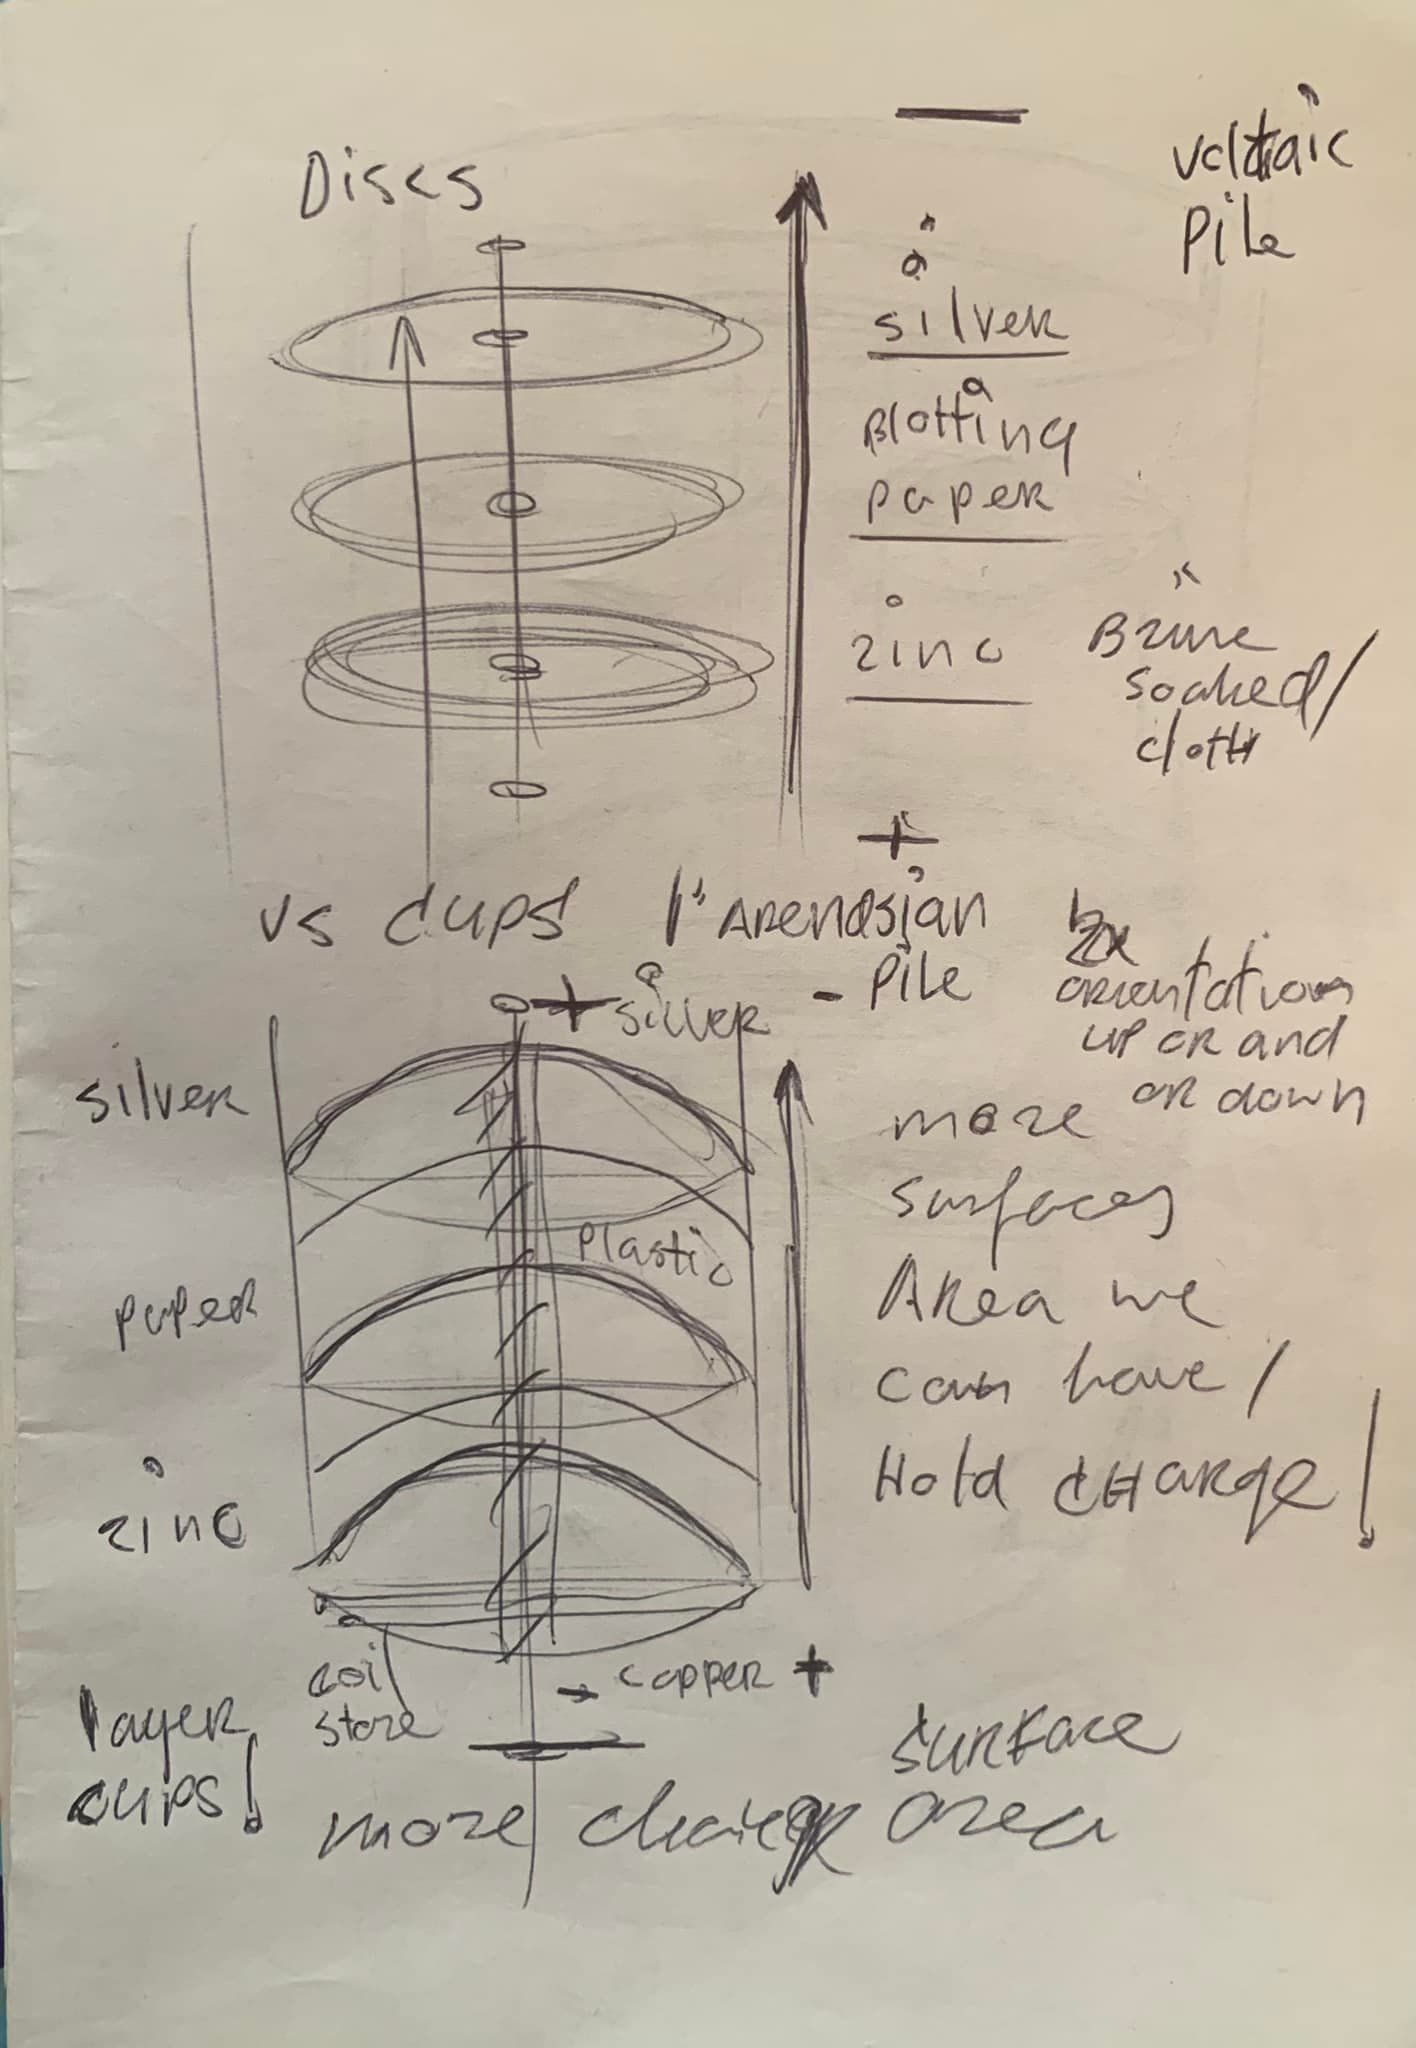 Discs
—
voltaic
Pile
silver
Blotting
paper
zinc
Brine
soaked/
cloth
+
vs cups
Arendsian
- Pile
orientation
up or and
or down
+ silver
silver
more
surfaces
Area we
can have /
Hold CHArge!
Plastic
paper
zinc
coil
store
- copper +
layer
cups!
surface
more charge area